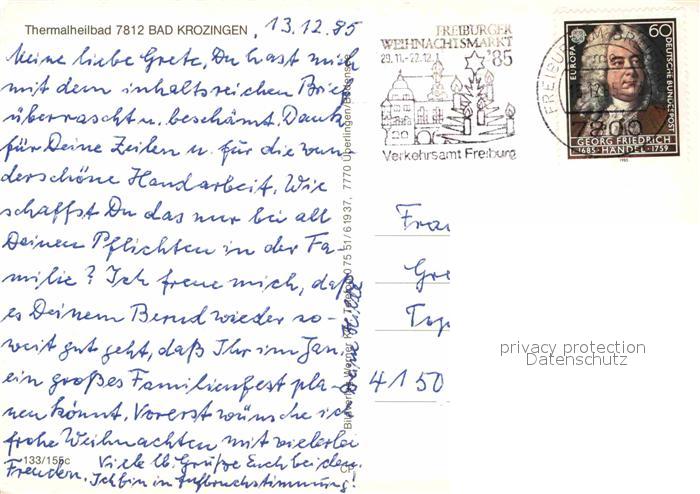 Thermalheilbad 7812 BAD KROZINGEN, 13.12.85
Meine liebe Grete, Du hast mich
mit dem inhaltsreichen Brief
überrascht u. beschämt. Dank
für Deine Zeilen u. für die wun-
derschöne Handarbeit. Wie
schaffst Du das nur bei all
Deinen Pflichten in der Fa-
milie? Ich freue mich, daß
es Deinem Bernd wieder so-
weit gut geht, daß Ihr im Jan.
ein großes Familienfest pla-
nen könnt. Vorerst wünsche ich
frohe Weihnachten mit vielerlei
Freuden. Viele lb. Grüße Euch beiden.
Ich bin in Aufbruchstimmung!
Deine Hilde
133/155c
7770 Überlingen/Bodensee
Telefon 0 75 51/6 19 37,
FREIBURGER
WEIHNACHTSMARKT
29.11.-22.12. '85
Verkehrsamt Freiburg
FREIBURG
7800
EUROPA
60
DEUTSCHE BUNDESPOST
GEORG FRIEDRICH
1685 · HÄNDEL · 1759
1985
Frau
Gre
Top
4150
privacy protection
Datenschutz